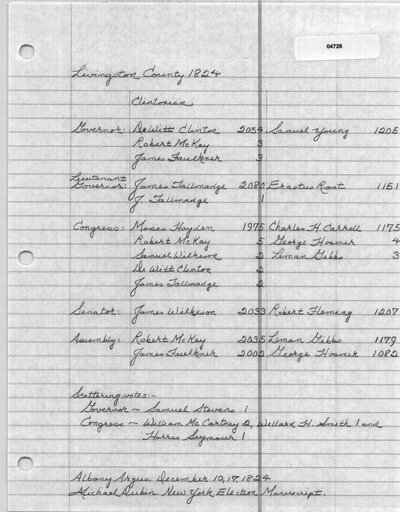 04726
Livingston County 1824
Clintonian
Governor: DeWitt Clinton 2054 Samuel Young 1205
Robert McKay 3
James Faulkner 3
Lieutenant
Governor: James Tallmadge 2080 Erastus Root 1151
J. Tallmadge 1
Congress: Moses Hayden 1975 Charles H. Carroll 1175
Robert McKay 5 George Hosmer 4
Samuel Wilkeson 2 Leman Gibbs 3
De Witt Clinton 2
James Tallmadge 2
Senator: James Wilkeson 2033 Robert Fleming 1207
Assembly: Robert McKay 2035 Leman Gibbs 1179
James Faulkner 2002 George Hosmer 1082
Scattering votes:-
Governor - Samuel Stevens 1
Congress - William McCartney 2, Willard H. Smith 1 and
Harris Seymour 1
Albany Argus. December 10, 17, 1824
Michael Dubin. New York Election Manuscript.